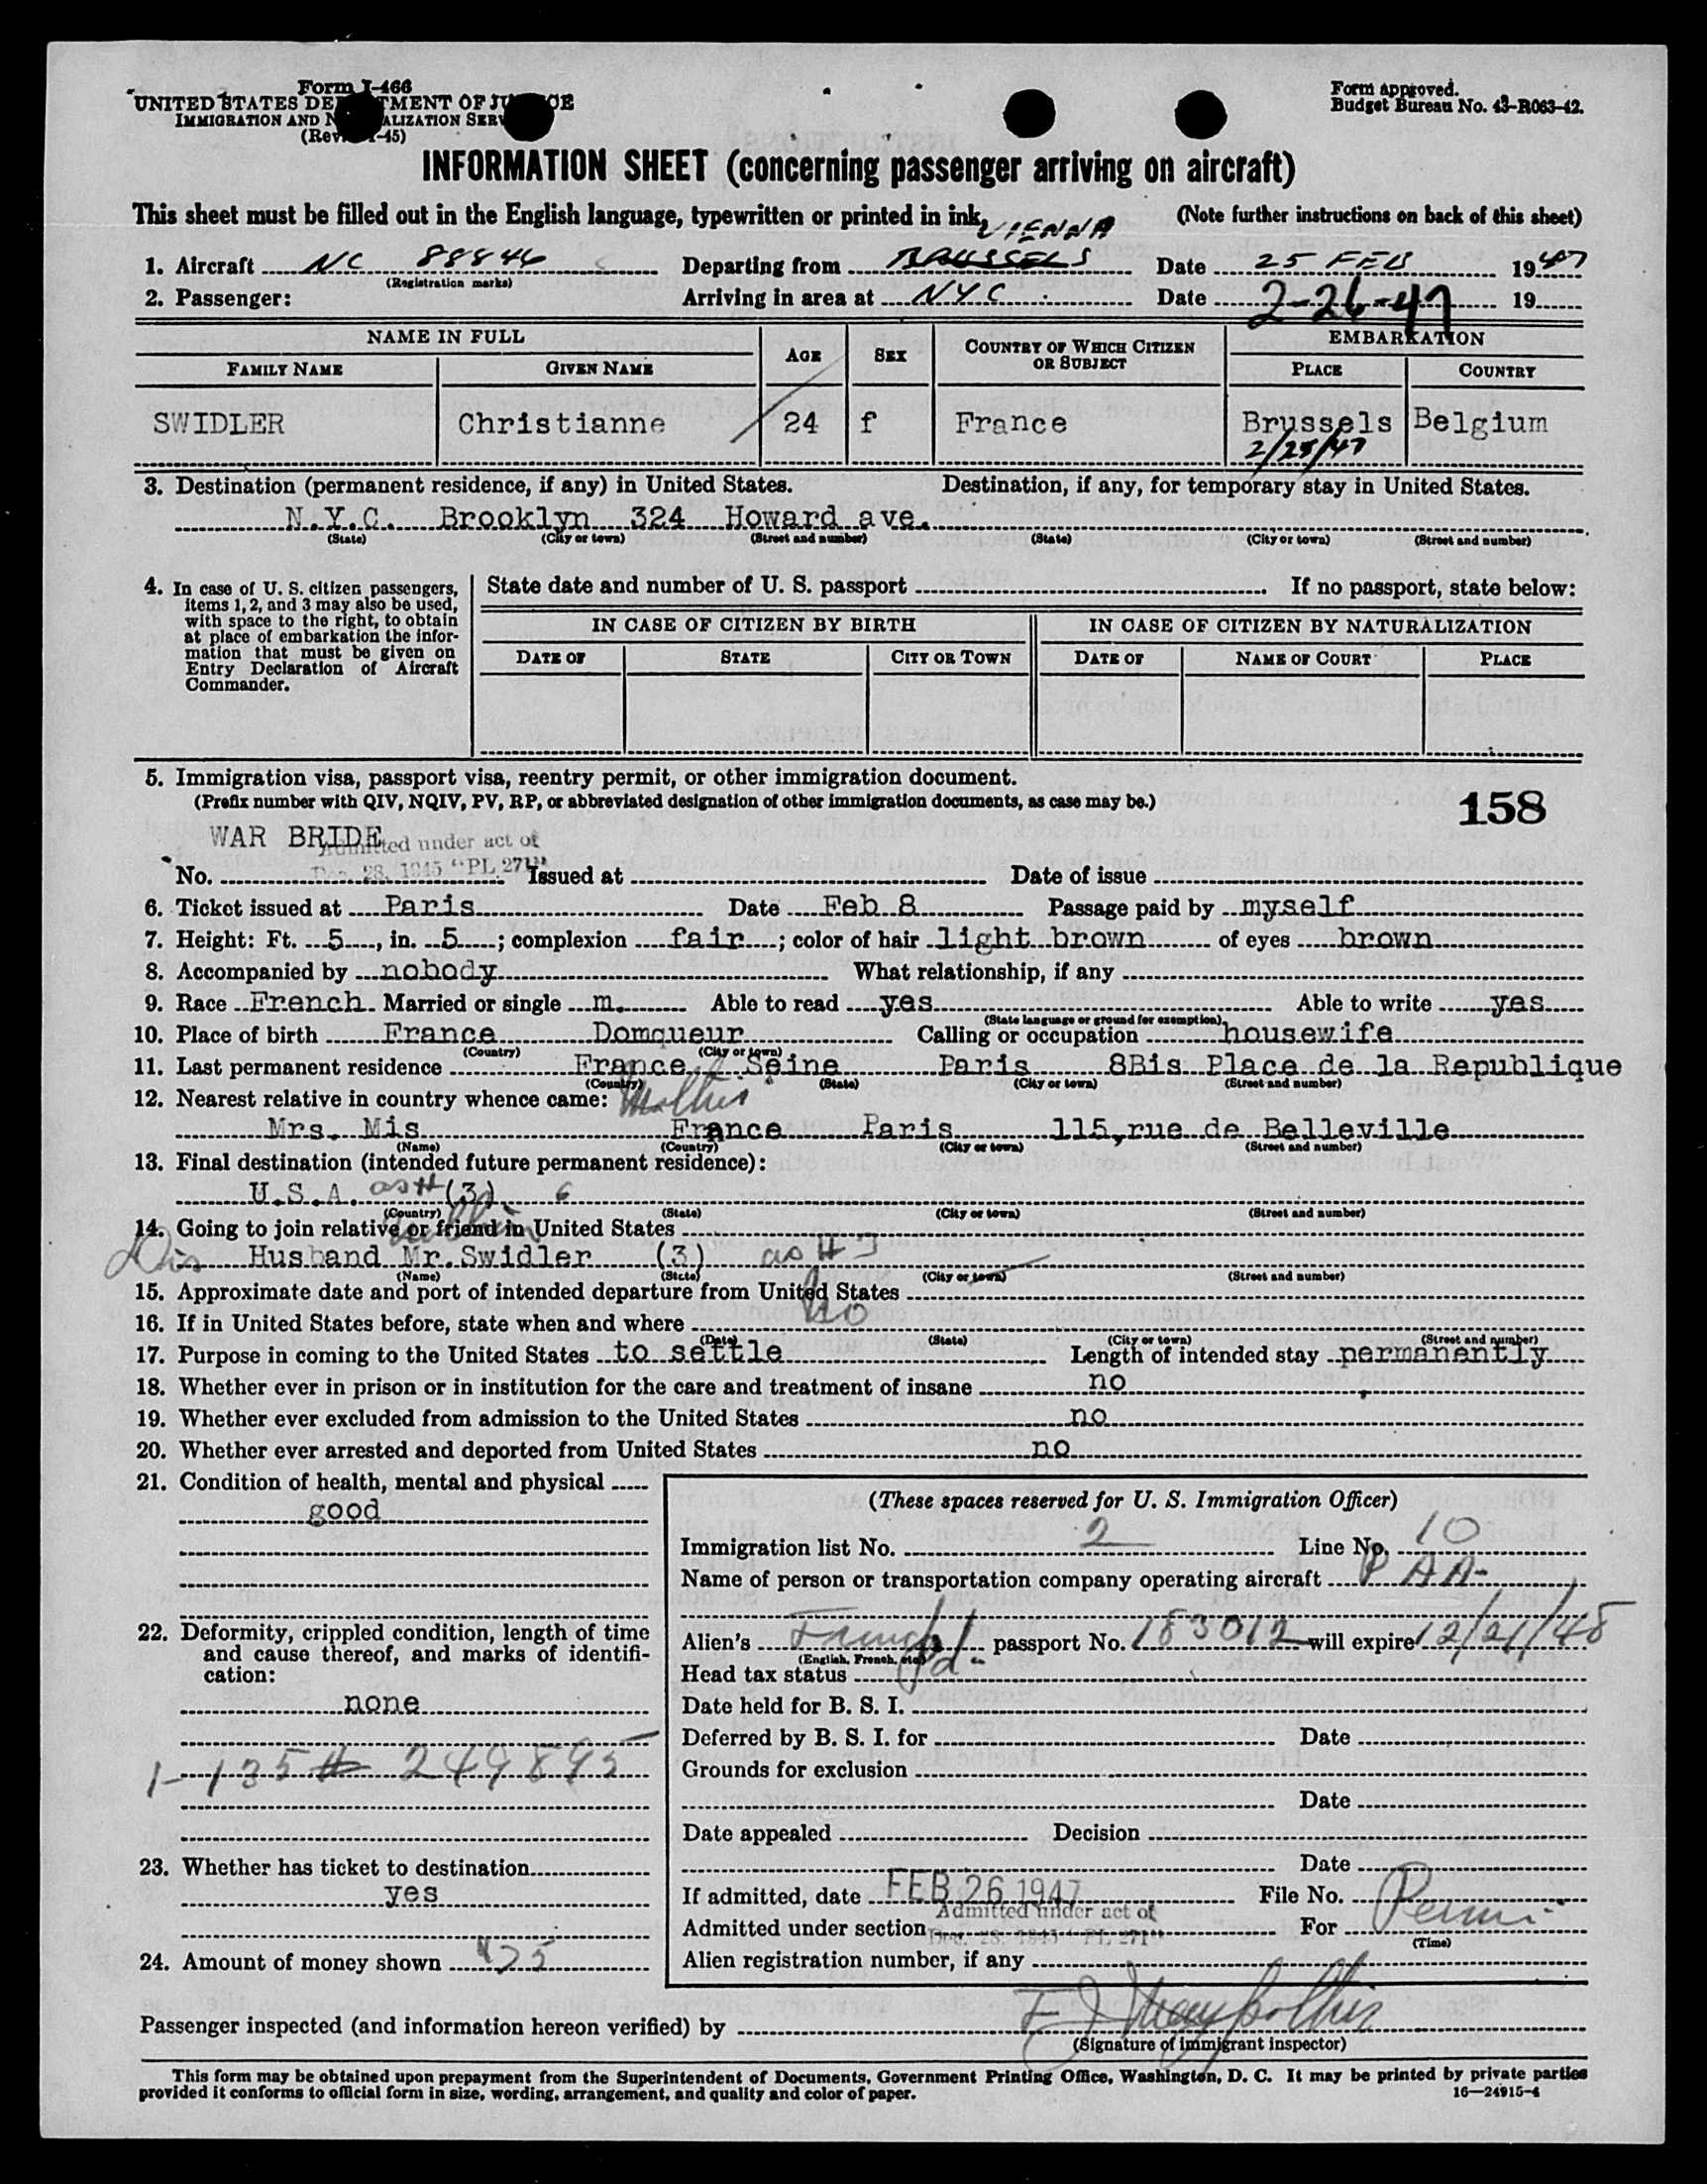 Form I-466
UNITED STATES DEPARTMENT OF JUSTICE
IMMIGRATION AND NATURALIZATION SERVICE
(Rev. -45)
Form approved.
Budget Bureau No. 43-R063-42.
INFORMATION SHEET (concerning passenger arriving on aircraft)
This sheet must be filled out in the English language, typewritten or printed in ink. (Note further instructions on back of this sheet)
VIENNA
1. Aircraft NC 88846 Departing from BRUSSELS Date 25 FEB 1947
(Registration marks)
2. Passenger: Arriving in area at NYC Date 2-26-47 19
NAME IN FULL AGE SEX COUNTRY OF WHICH CITIZEN OR SUBJECT EMBARKATION
FAMILY NAME GIVEN NAME PLACE COUNTRY
SWIDLER Christianne 24 f France Brussels Belgium
2/25/47
3. Destination (permanent residence, if any) in United States. Destination, if any, for temporary stay in United States.
N.Y.C. Brooklyn 324 Howard ave.
(State) (City or town) (Street and number) (State) (City or town) (Street and number)
4. In case of U. S. citizen passengers, items 1, 2, and 3 may also be used, with space to the right, to obtain at place of embarkation the information that must be given on Entry Declaration of Aircraft Commander.
State date and number of U. S. passport If no passport, state below:
IN CASE OF CITIZEN BY BIRTH IN CASE OF CITIZEN BY NATURALIZATION
DATE OF STATE CITY OR TOWN DATE OF NAME OF COURT PLACE
5. Immigration visa, passport visa, reentry permit, or other immigration document.
(Prefix number with QIV, NQIV, PV, RP, or abbreviated designation of other immigration documents, as case may be.)
158
WAR BRIDE Admitted under act of
Dec. 28, 1945 "PL 271"
No. Issued at Date of issue
6. Ticket issued at Paris Date Feb 8 Passage paid by myself
7. Height: Ft. 5, in. 5; complexion fair; color of hair light brown of eyes brown
8. Accompanied by nobody What relationship, if any
9. Race French Married or single m. Able to read yes Able to write yes
(State language or ground for exemption)
10. Place of birth France Domqueur Calling or occupation housewife
(Country) (City or town)
11. Last permanent residence France Seine Paris 8Bis Place de la Republique
(Country) (State) (City or town) (Street and number)
12. Nearest relative in country whence came: Mother
Mrs. Mis France Paris 115,rue de Belleville
(Name) (Country) (City or town) (Street and number)
13. Final destination (intended future permanent residence):
U.S.A. as # (3)
(Country) (State) (City or town) (Street and number)
14. Going to join relative or friend in United States
Husband Mr.Swidler (3) as # 3
(Name) (State) (City or town) (Street and number)
15. Approximate date and port of intended departure from United States
16. If in United States before, state when and where No
(Date) (State) (City or town) (Street and number)
17. Purpose in coming to the United States to settle Length of intended stay permanently
18. Whether ever in prison or in institution for the care and treatment of insane no
19. Whether ever excluded from admission to the United States no
20. Whether ever arrested and deported from United States no
21. Condition of health, mental and physical
good
22. Deformity, crippled condition, length of time and cause thereof, and marks of identification:
none
1-135# 249895
23. Whether has ticket to destination
yes
24. Amount of money shown 75
(These spaces reserved for U. S. Immigration Officer)
Immigration list No. 2 Line No. 10
Name of person or transportation company operating aircraft P AA-
Alien's French passport No. 183012 will expire 12/21/48
(English, French, etc.)
Head tax status
Date held for B. S. I.
Deferred by B. S. I. for Date
Grounds for exclusion
Date
Date appealed Decision
Date
If admitted, date FEB 26 1947 File No.
Admitted under act of
Admitted under section Dec. 28, 1945 "PL 271" For Perm
(Time)
Alien registration number, if any
Passenger inspected (and information hereon verified) by
(Signature of immigrant inspector)
This form may be obtained upon prepayment from the Superintendent of Documents, Government Printing Office, Washington, D. C. It may be printed by private parties
provided it conforms to official form in size, wording, arrangement, and quality and color of paper. 16—24915-4